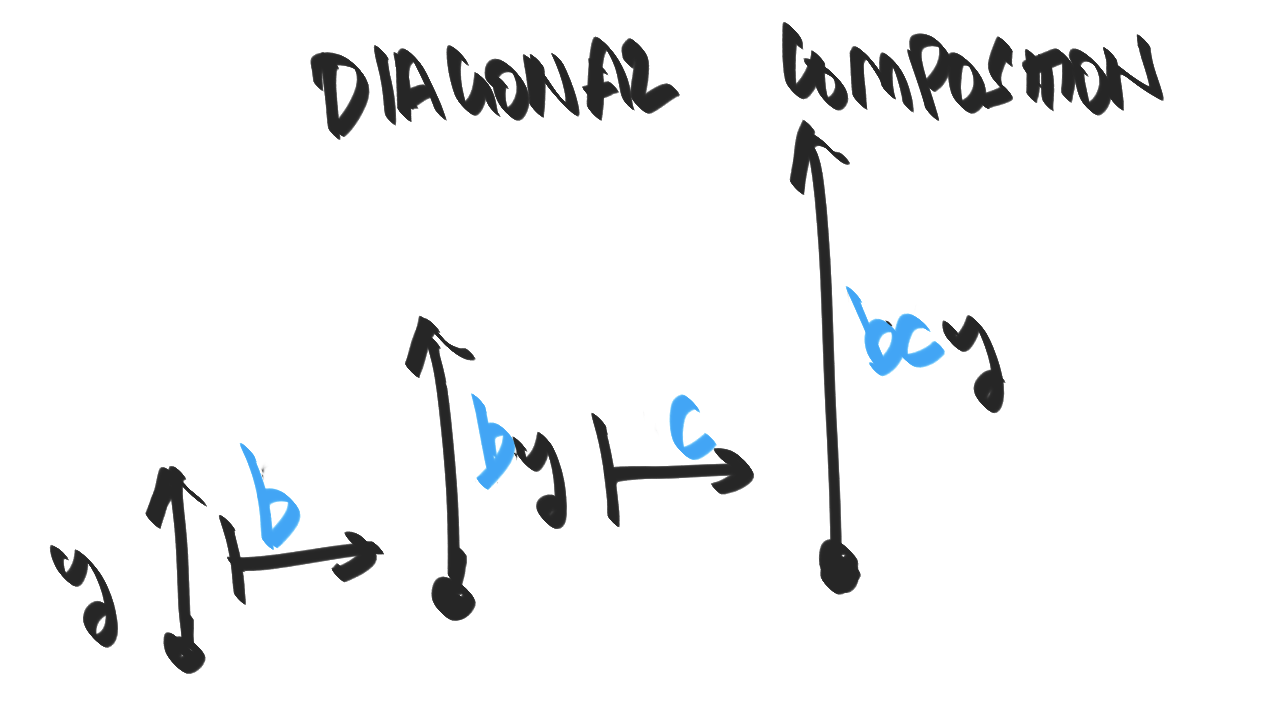 DIAGONAL COMPOSITION
y
b
by
c
bcy